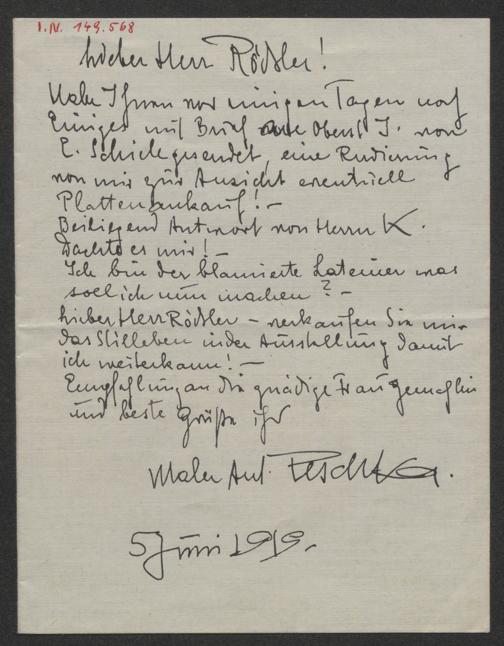 I.N. 149.568
Lieber Herr Rößler!
Habe Ihnen vor einigen Tagen noch
Einiges mit Brief Oberst J. von
E. Schiele gesendet, eine Radierung
von mir zur Ansicht eventuell
Plattenankauf! —
Beiliegend Antwort von Herrn K.
Dachte es mir! —
Ich bin der blamierte Lateiner was
soll ich nun machen? —
Lieber Herr Rößler — verkaufen Sie mir
das Stilleben in der Ausstellung damit
ich weiterkann! —
Empfehlung an die gnädige Frau Gemahlin
und beste Grüße ihr
Maler Ant. Peschka.
5 Juni 1919.